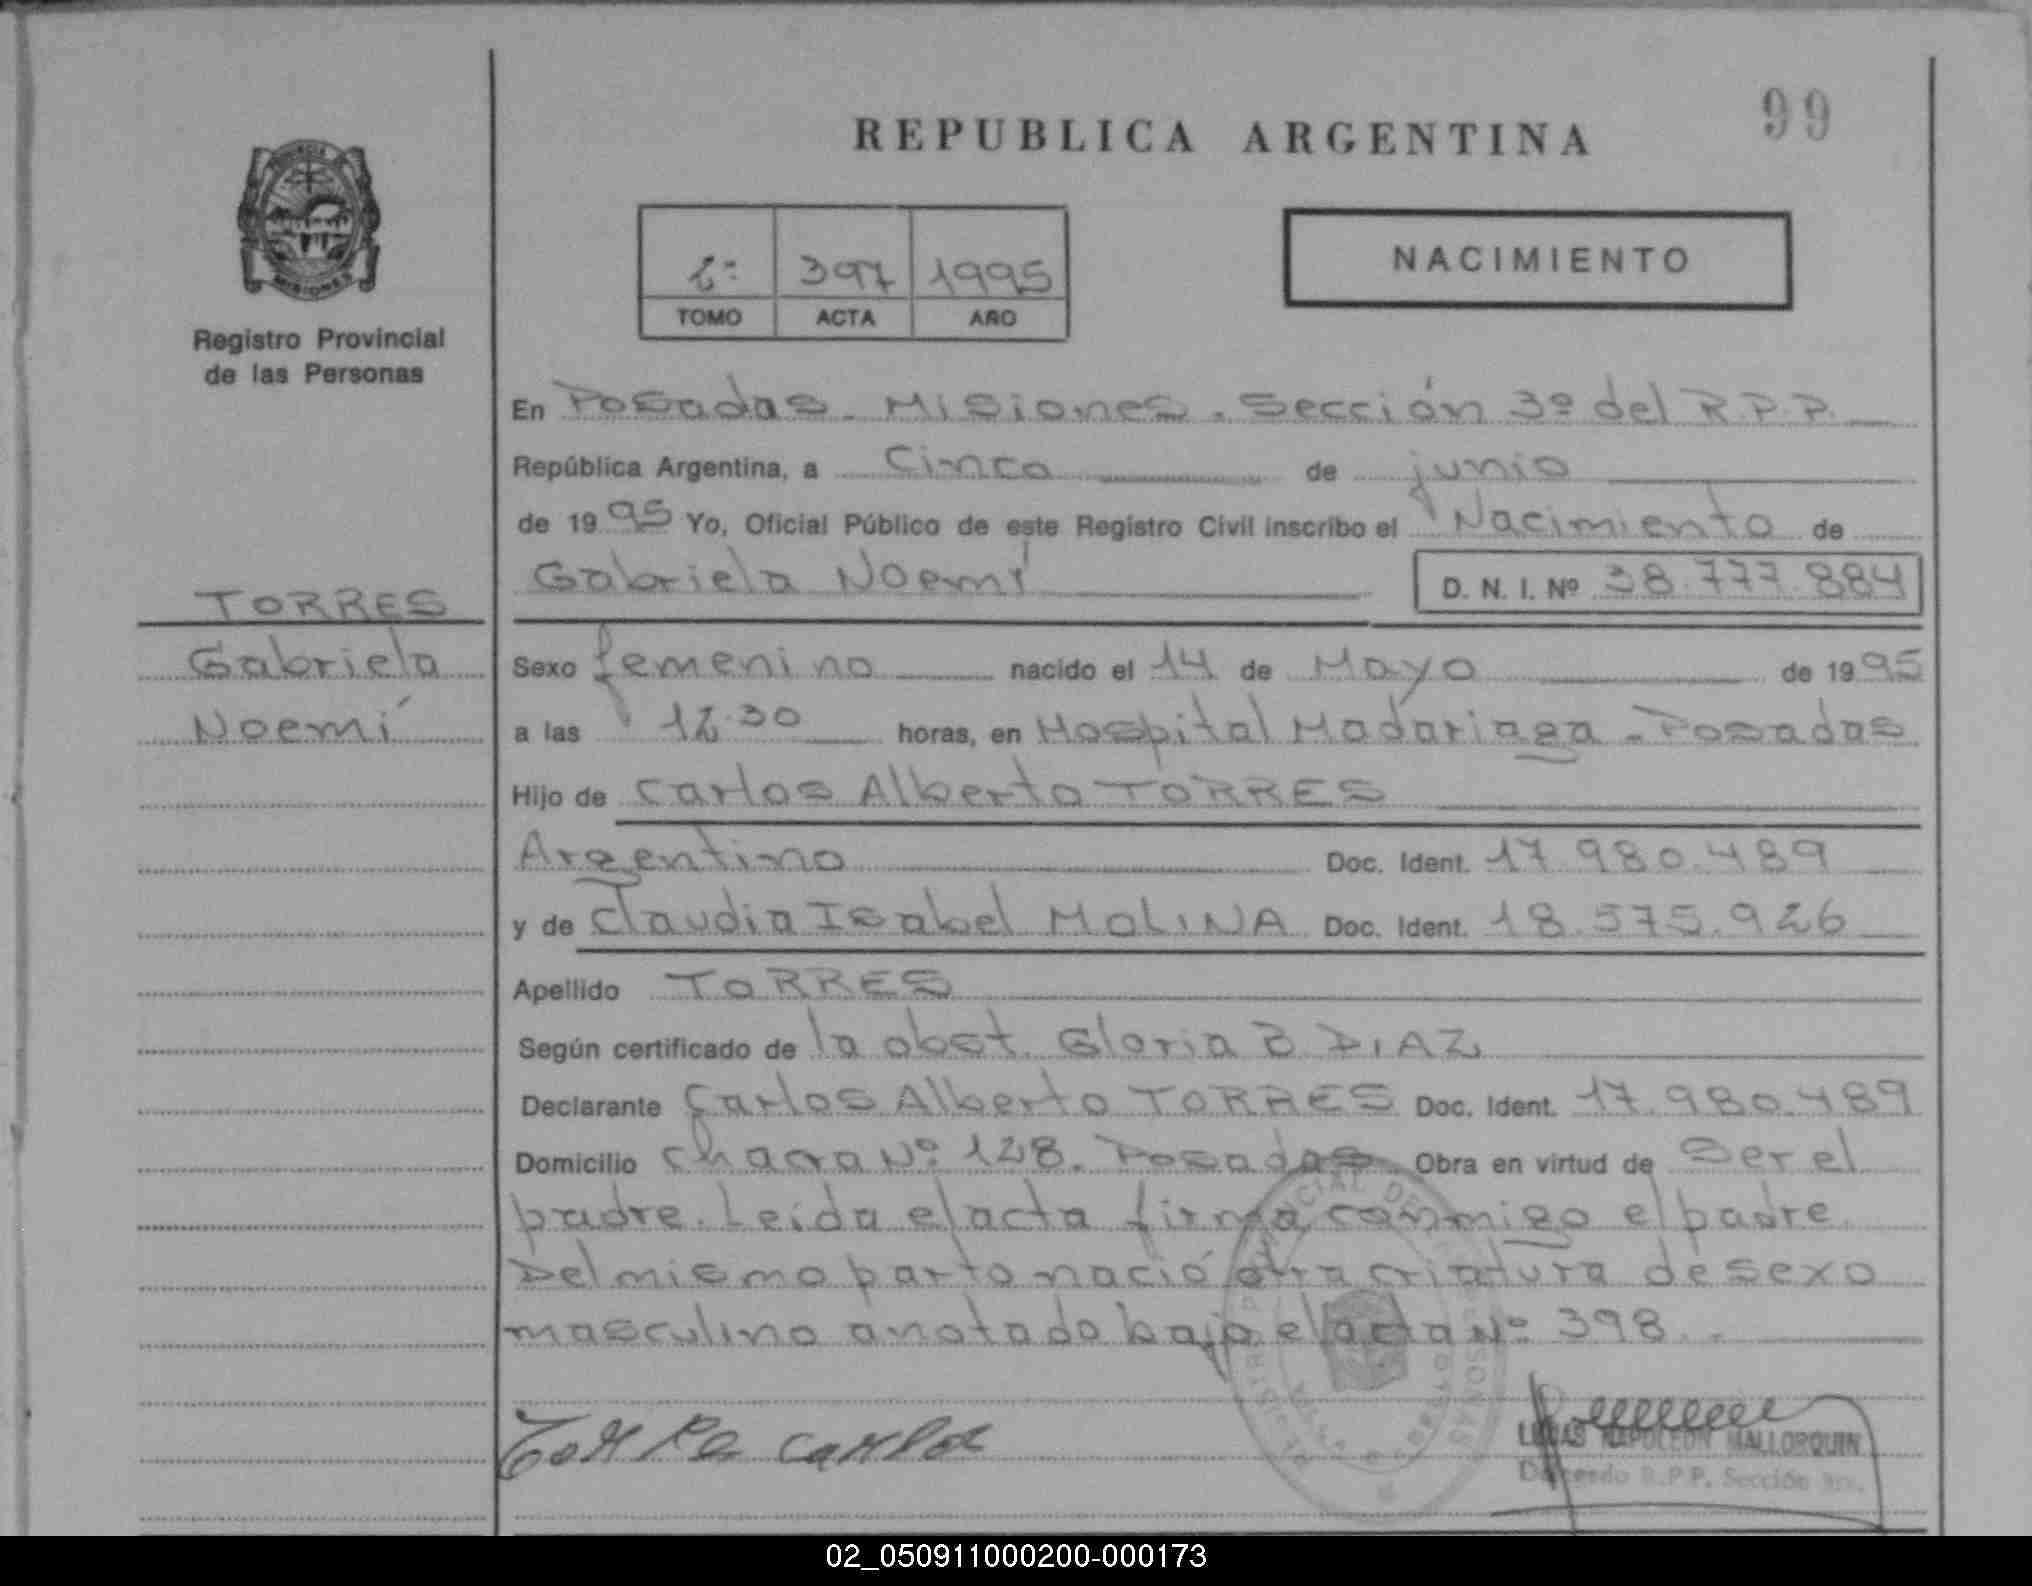 99
REPUBLICA ARGENTINA
2º 397 1995
TOMO ACTA AÑO
NACIMIENTO
MISIONES
Registro Provincial
de las Personas
TORRES
Gabriela
Noemí
En Posadas - Misiones - Sección 3º del R.P.P.
República Argentina, a Cinco de junio
de 1995 Yo, Oficial Público de este Registro Civil inscribo el Nacimiento de
Gabriela Noemí D. N. I. Nº 38.777.884
Sexo femenino nacido el 14 de Mayo de 1995
a las 12.30 horas, en Hospital Madariaga - Posadas
Hijo de Carlos Alberto TORRES
Argentino Doc. Ident. 17.980.489
y de Claudia Isabel MOLINA Doc. Ident. 18.575.926
Apellido TORRES
Según certificado de la obst. Gloria B DIAZ
Declarante Carlos Alberto TORRES Doc. Ident. 17.980.489
Domicilio Chacra Nº 128. Posadas Obra en virtud de Ser el
padre. Leída el acta firma conmigo el padre
Del mismo parto nació otra criatura de sexo
masculino anotado bajo el acta Nº 398.
Torres Carlos
LUCAS NAPOLEON MALLORQUIN
R.P.P. Sección 3ra.
02_050911000200-000173